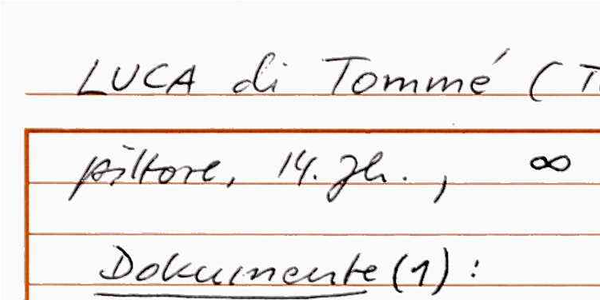 LUCA di Tommé (T
pittore, 14. Jh., ∞
Dokumente (1):